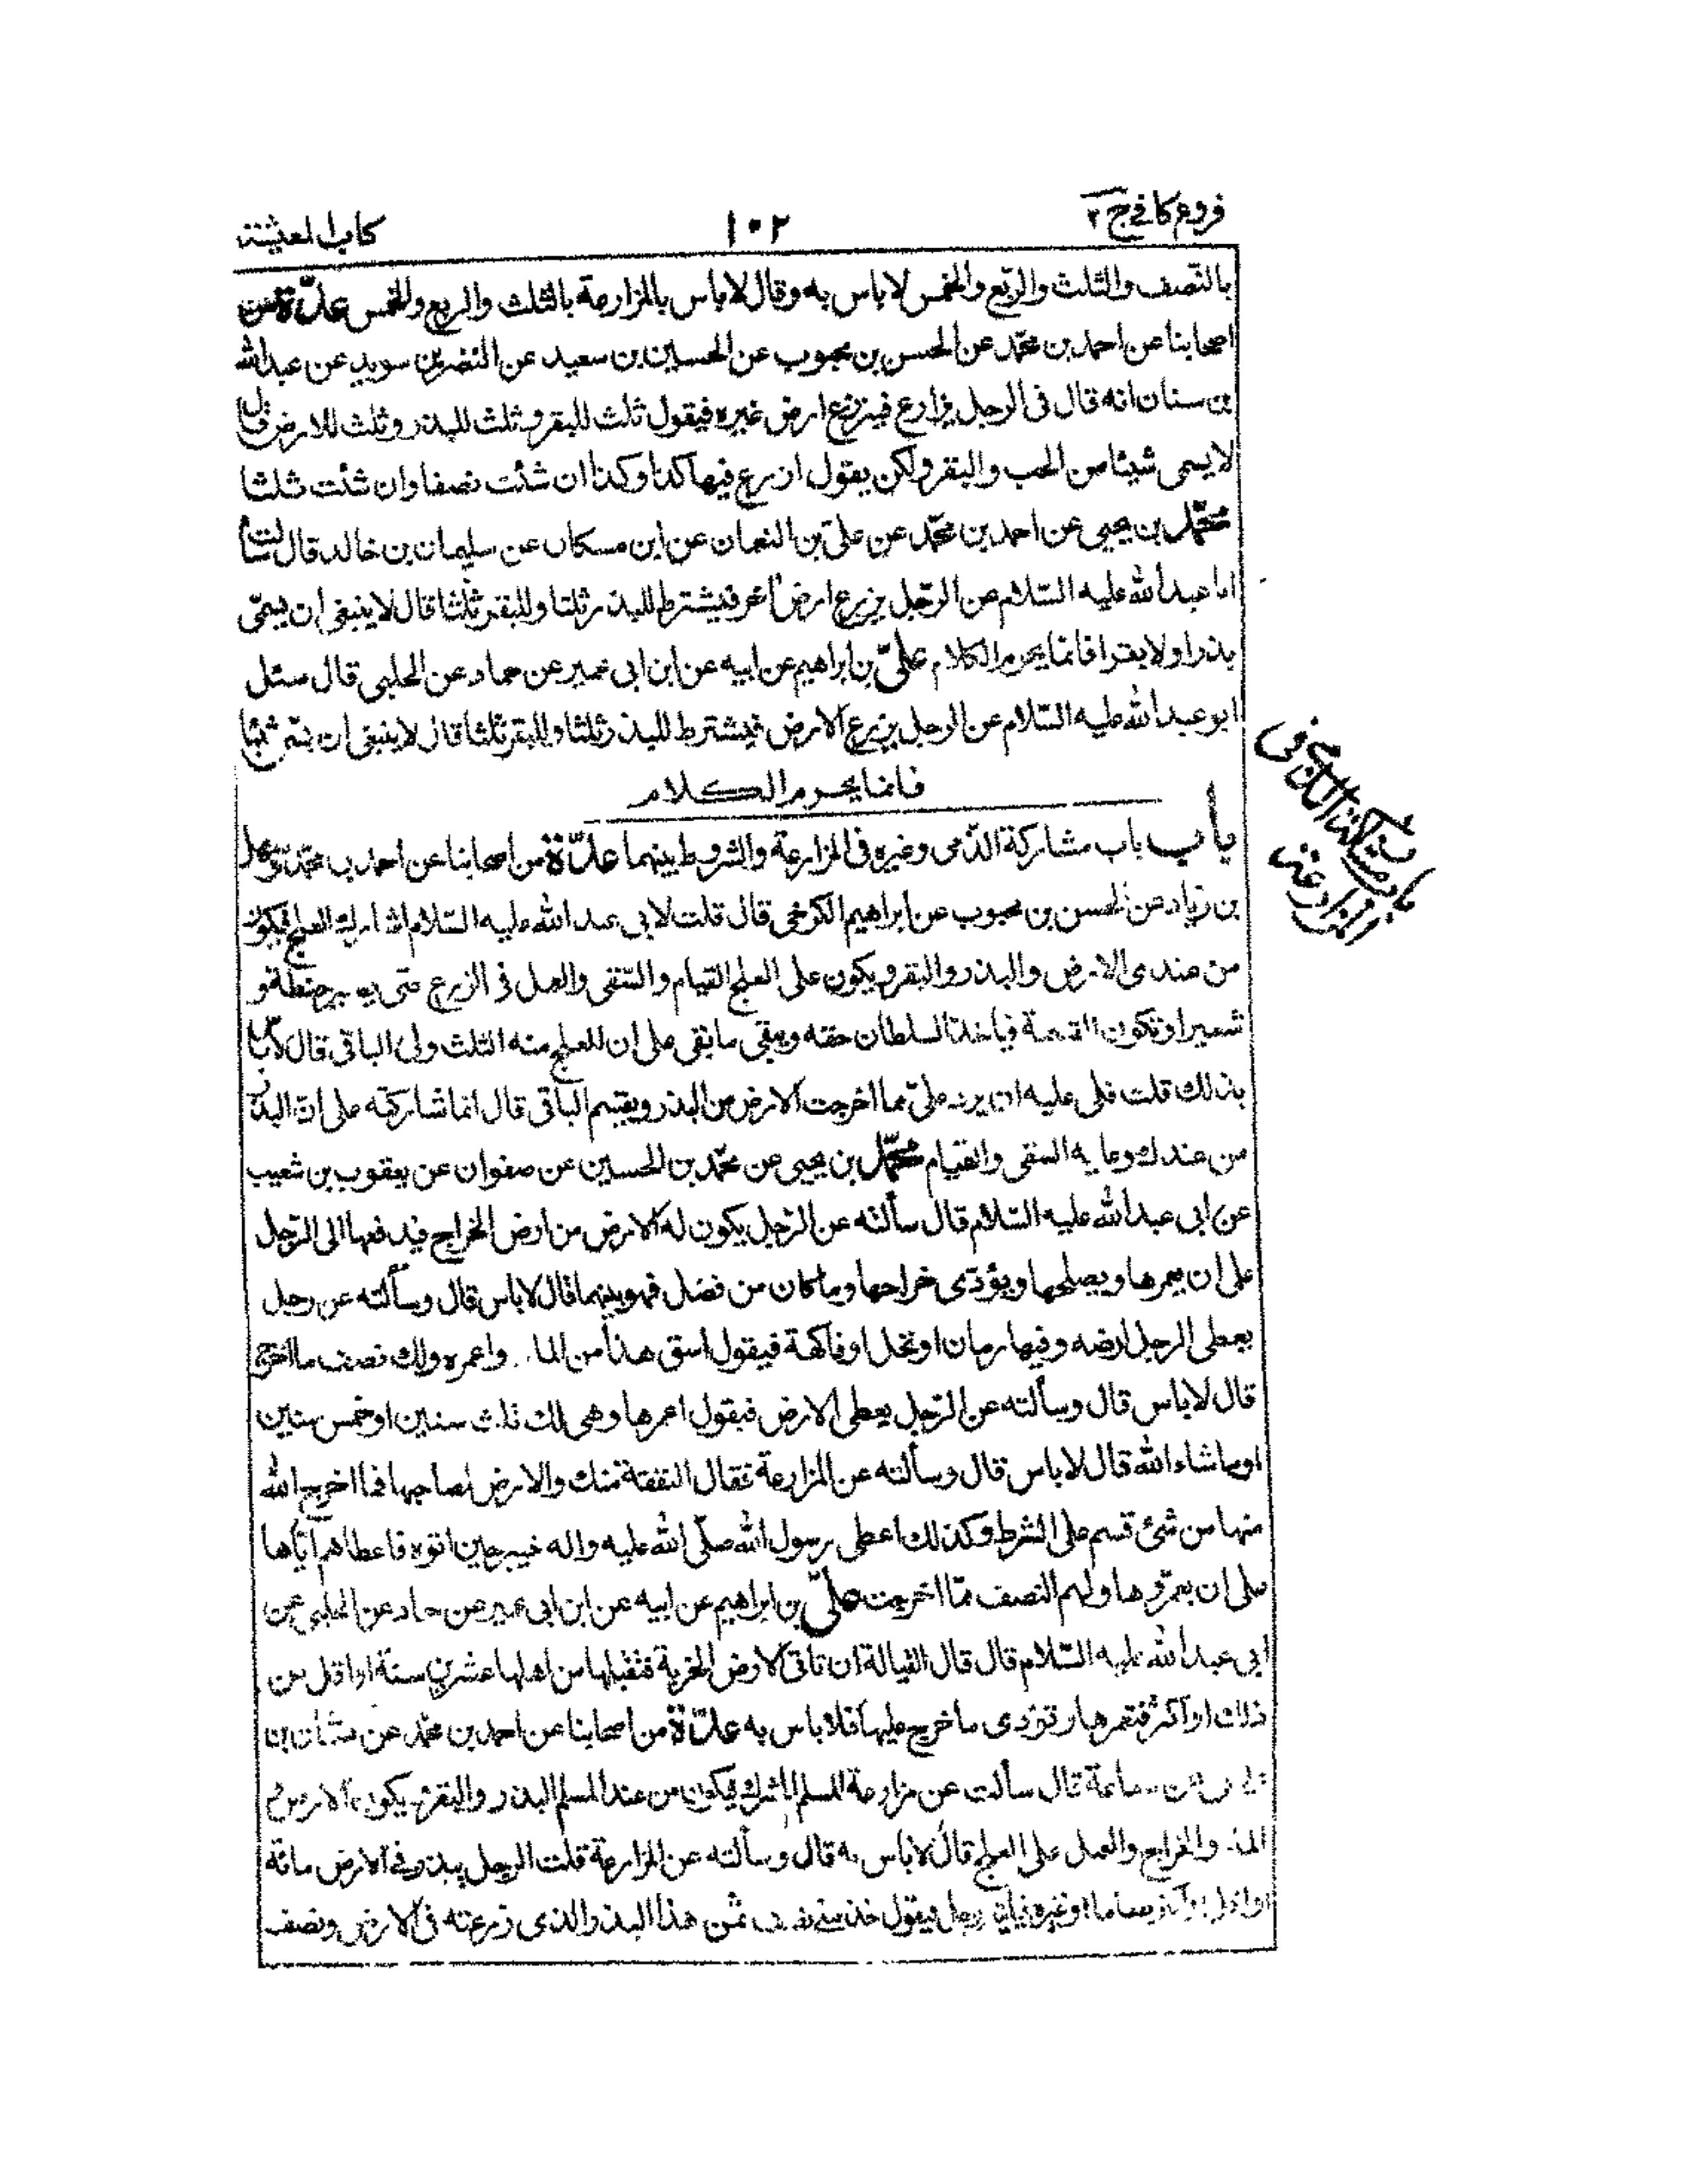 فروع كافي ج ٢
١٠٢
كتاب المعيشة
بالنّصف والثلث والرّبع والخمس لا باس به وقال لا باس بالمزارعة بالثلث والربع والخمس عدّة من
اصحابنا عن احمد بن محمّد عن الحسن بن محبوب عن الحسين بن سعيد عن النضر بن سويد عن عبدالله
بن سنان انه قال فى الرجل يزارع فيزرع ارض غيره فيقول ثلث للبقر وثلث للبذر وثلث للارض قال
لا يسمى شيئا من الحب والبقر ولكن يقول ازرع فيها كذا وكذا ان شئت نصفا وان شئت ثلثا
محمّد بن يحيى عن احمد بن محمّد عن علىّ بن النعمان عن ابن مسكان عن سليمان بن خالد قال سألت
ابا عبدالله عليه السّلام عن الرّجل يزرع ارض اخر فيشترط للبذر ثلثا وللبقر ثلثا قال لا ينبغى ان يسمّى
بذرا ولا بقرا فانما يحرم الكلام علىّ بن ابراهيم عن ابيه عن ابن ابى عمير عن حماد عن الحلبى قال سئل
ابو عبدالله عليه السّلام عن الرجل يزرع الارض فيشترط للبذر ثلثا وللبقر ثلثا قال لا ينبغى ان يسمّى شيئا
فانما يحرم الكلام
باب مشاركة الذمى فى
المزارعة
باب باب مشاركة الذّمى وغيره فى المزارعة والشروط بينهما عدّة من اصحابنا عن احمد بن محمّد وسهل
بن زياد عن الحسن بن محبوب عن ابراهيم الكرخى قال قلت لابى عبدالله عليه السّلام اشارك العلج فيكون
من عندى الارض والبذر والبقر ويكون على العلج القيام والسّقى والعمل فى الزرع حتى يصير حنطة و
شعيرا وتكون القسمة فياخذ السلطان حقه ويبقى ما بقى على ان للعلج منه الثلث ولى الباقى قال لا باس
بذلك قلت فلى عليه ان يرد علىّ مما اخرجت الارض من البذر ويقسم الباقى قال انما شاركته على انّ البذر
من عندك وعليه السقى والقيام محمّد بن يحيى عن محمّد بن الحسين عن صفوان عن يعقوب بن شعيب
عن ابى عبدالله عليه السّلام قال سألته عن الرّجل يكون له الارض من ارض الخراج فيدفعها الى الرّجل
على ان يعمرها ويصلحها ويؤدّى خراجها وما كان من فضل فهو بينهما قال لا باس قال وسألته عن رجل
يعطى الرجل ارضه وفيها رمان او نخل او فاكهة فيقول اسق هذا من الماء واعمره ولك نصف ما اخرج
قال لا باس قال وسألته عن الرّجل يعطى الارض فيقول اعمرها وهى لك ثلث سنين او خمس سنين
او ما شاء الله قال لا باس قال وسألته عن المزارعة فقال النفقة منك والارض لصاحبها فما اخرج الله
منها من شئ قسم على الشرط وكذلك اعطى رسول الله صلّى الله عليه واله خيبر حين اتوه فاعطاهم ايّاها
على ان يعمّروها ولهم النصف ممّا اخرجت علىّ بن ابراهيم عن ابيه عن ابن ابى عمير عن حماد عن الحلبى عن
ابى عبدالله عليه السّلام قال قال القبالة ان تاتى الارض الخربة فتقبلها من اهلها عشرين سنة او اقل من
ذلك او اكثر فتعمرها وتؤدى ما خرج عليها فلا باس به عدّة من اصحابنا عن احمد بن محمّد عن عثمان بن
عن سماعة قال سألت عن مزارعة المسلم المشرك فيكون من عند المسلم البذر والبقر ويكون الارض و
الماء والخراج والعمل على العلج قال لا باس به قال وسألته عن المزارعة قلت الرجل يبذر فى الارض مائة
طعاما او غيره فياتيه رجل فيقول خذ منى ثمن هذا البذر الذى زرعته فى الارض ونصف